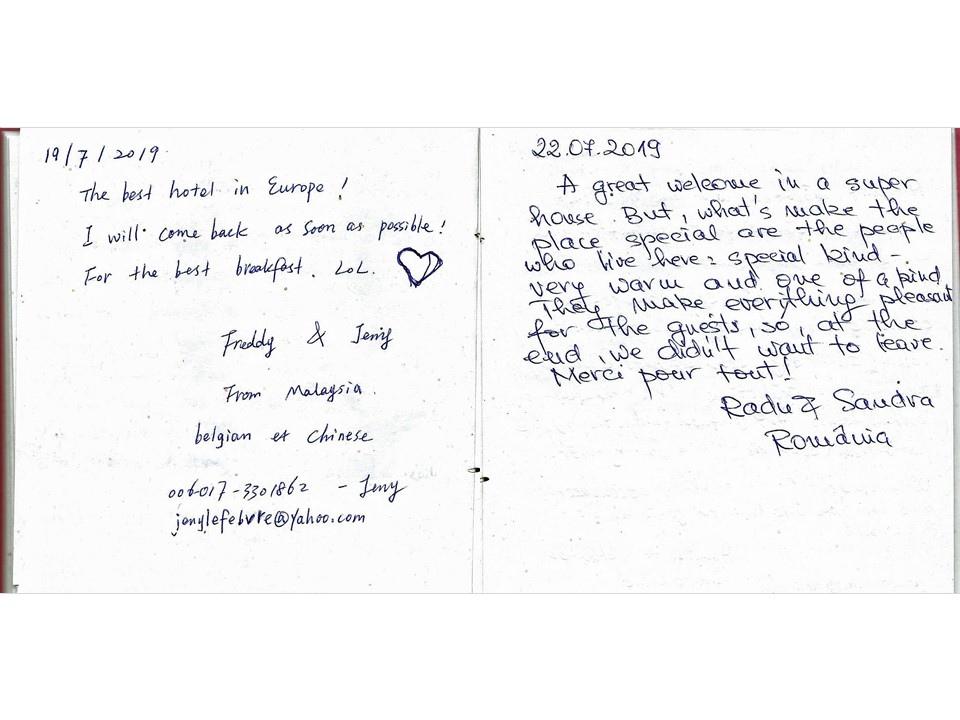 19/7/2019
The best hotel in Europe !
I will come back as soon as possible !
For the best breakfast. LoL.
Freddy & Jeny
From Malaysia.
belgian et Chinese
006-017-3301862 - Jeny
jenylefebvre@yahoo.com
22.07.2019
A great welcome in a super
house. But, what's make the
place special are the people
who live here: special kind -
very warm and one of a kind.
They make everything pleasant
for the guests, so, at the
end, we didn't want to leave.
Merci pour tout!
Radu & Sandra
România